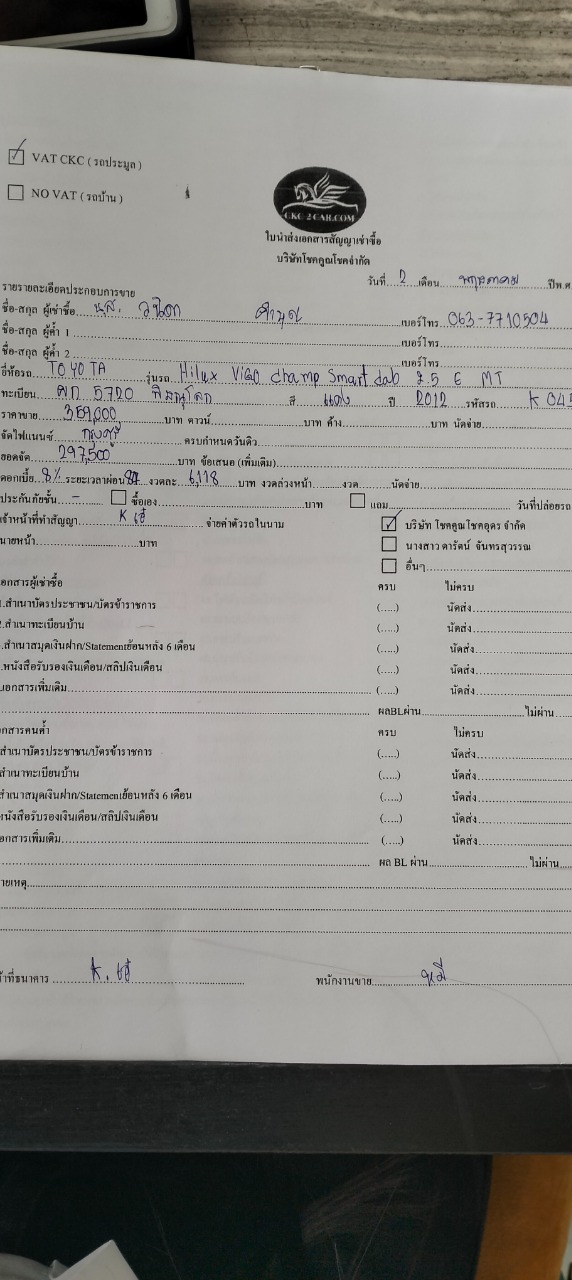 VAT CKC ( รถประมูล )
NO VAT ( รถบ้าน )
CKC 2 CAR.COM
ใบนำส่งเอกสารสัญญาเช่าซื้อ
บริษัทโชคคูณโชคจำกัด
วันที่ 2 เดือน พฤษภาคม ปีพ.ศ.
รายละเอียดประกอบการขาย
ชื่อ-สกุล ผู้เช่าซื้อ น.ส. เบอร์โทร 063-7710504
ชื่อ-สกุล ผู้ค้ำ 1 เบอร์โทร
ชื่อ-สกุล ผู้ค้ำ 2 เบอร์โทร
ยี่ห้อรถ TOYOTA รุ่นรถ Hilux ViGO champ smart cab 2.5 E MT
ทะเบียน ผก 5720 พิษณุโลก สี แดง ปี 2012 รหัสรถ K 045
ราคาขาย 359,000 บาท ดาวน์ บาท ค้าง บาท นัดจ่าย
จัดไฟแนนซ์ กรุงศรี ครบกำหนดวันดิว
ยอดจัด 297,500 บาท ข้อเสนอ (เพิ่มเติม)
ดอกเบี้ย 8% ระยะเวลาผ่อน งวดละ 6,118 บาท งวดล่วงหน้า งวด นัดจ่าย
ประกันภัยชั้น - ซื้อเอง บาท แถม วันที่ปล่อยรถ
เจ้าหน้าที่ทำสัญญา K จ่ายค่าตัวรถในนาม บริษัท โชคคูณโชคอุดร จำกัด
นายหน้า บาท นางสาว ดารัตน์ จันทรสุวรรณ
อื่นๆ
เอกสารผู้เช่าซื้อ ครบ ไม่ครบ
1.สำเนาบัตรประชาชน/บัตรข้าราชการ (.....) นัดส่ง
2.สำเนาทะเบียนบ้าน (.....) นัดส่ง
.สำเนาสมุดเงินฝาก/Statementย้อนหลัง 6 เดือน (.....) นัดส่ง
.หนังสือรับรองเงินเดือน/สลิปเงินเดือน (.....) นัดส่ง
เอกสารเพิ่มเติม (.....) นัดส่ง
ผลBLผ่าน ไม่ผ่าน
เอกสารคนค้ำ ครบ ไม่ครบ
สำเนาบัตรประชาชน/บัตรข้าราชการ (.....) นัดส่ง
สำเนาทะเบียนบ้าน (.....) นัดส่ง
สำเนาสมุดเงินฝาก/Statementย้อนหลัง 6 เดือน (.....) นัดส่ง
หนังสือรับรองเงินเดือน/สลิปเงินเดือน (.....) นัดส่ง
เอกสารเพิ่มเติม (.....) นัดส่ง
ผล BL ผ่าน ไม่ผ่าน
ายเหตุ
้าที่ธนาคาร K. พนักงานขาย หมี